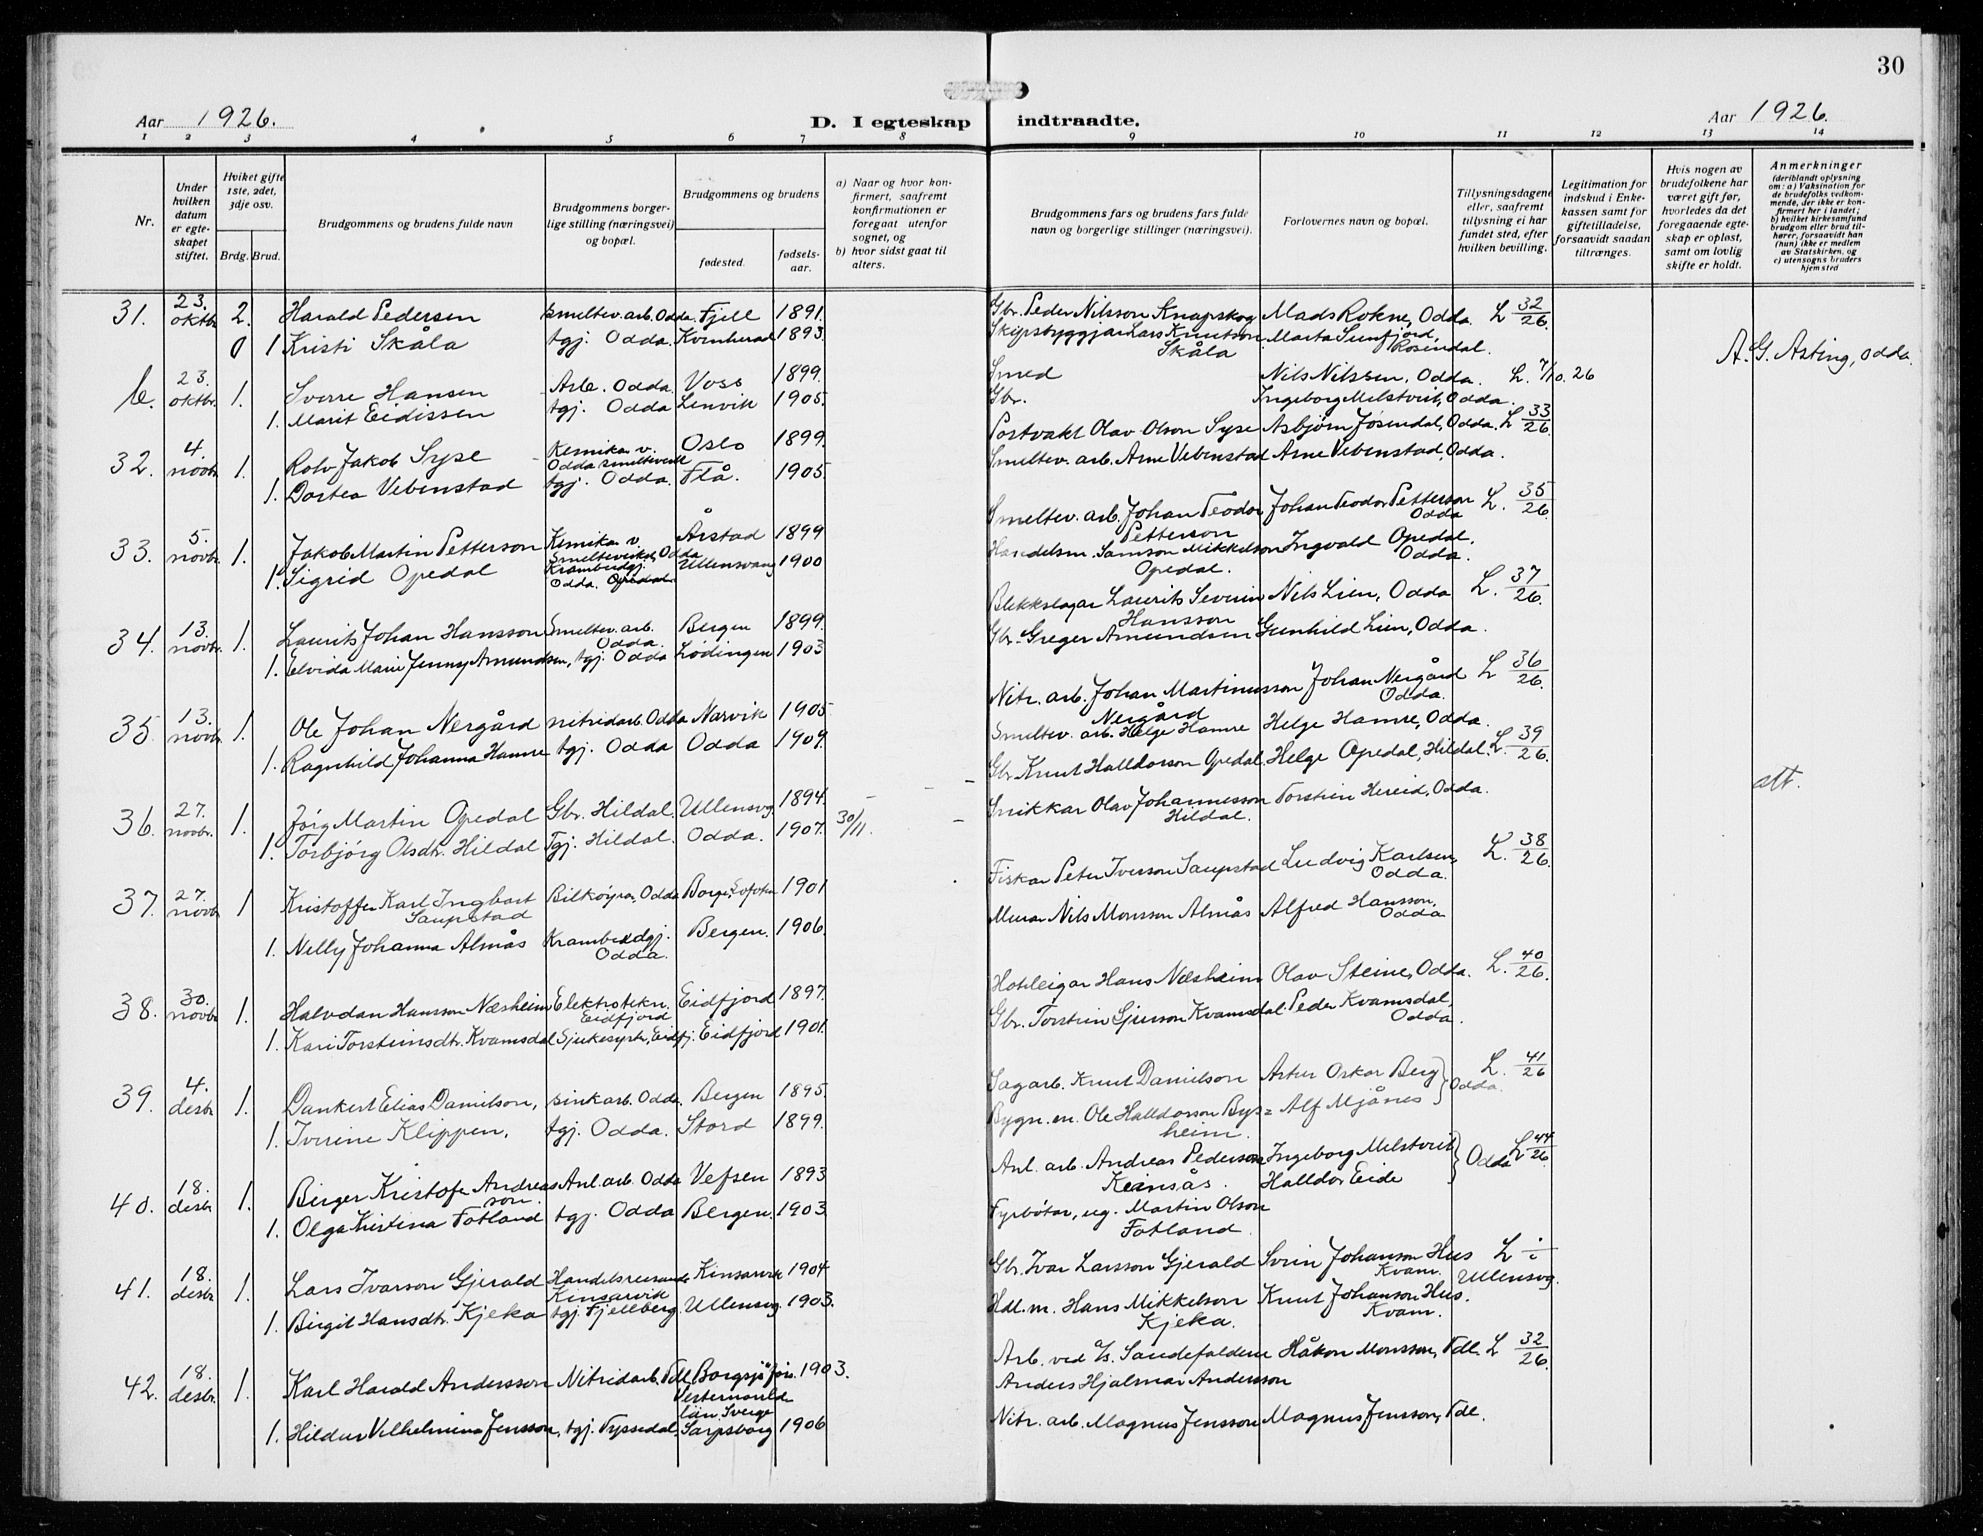 30
Aar 1926. D. I egteskap indtraadte. Aar 1926.
1 2 3 4 5 6 7 8 9 10 11 12 13 14
Nr.
Under hvilken datum er egteskapet stiftet.
Hviket gifte 1ste, 2det, 3dje osv.
Brdg. Brud.
Brudgommens og brudens fulde navn
Brudgommens borgerlige stilling (næringsvei) og bopæl.
Brudgommens og brudens
fødested.
fødselsaar.
a) Naar og hvor konfirmert, saafremt konfirmationen er foregaat utenfor sognet, og
b) hvor sidst gaat til alters.
Brudgommens fars og brudens fars fulde navn og borgerlige stillinger (næringsvei).
Forlovernes navn og bopæl.
Tillysningsdagene eller, saafremt tillysning ei har fundet sted, efter hvilken bevilling.
Legitimation for indskud i Enkekassen samt for giftetilladelse, forsaavidt saadan tiltrænges.
Hvis nogen av brudefolkene har været gift før, hvorledes da det foregaaende egteskap er opløst, samt om lovlig skifte er holdt.
Anmerkninger (deriblandt oplysning om: a) Vaksination for de brudefolks vedkommende, der ikke er konfirmert her i landet; b) hvilket kirkesamfund brudgom eller brud tilhører, forsaavidt han (hun) ikke er medlem av Statskirken, og c) utensogns bruders hjemsted
31. 23. oktbr. 2. Harald Pedersen Smeltev. arb. Odda. Fjell 1891. Gbr. Peder Nilsson Knapskog Mads Rokne, Odda. L 32/26.
1 Kristi Skåla tgj. Odda. Kvinherad 1893. Skipsbyggjar Lars Knutson Skåla Marta Sunfjord, Rosendal. A. G. Asting, Odda.
b. 23. oktbr. 1. Sverre Hansen Arb. Odda. Voss 1899. Smed Nils Nilssen, Odda. L. 7/10. 26
1. Marit Eidissen tgj. Odda Lenvik 1905. Gbr. Ingeborg Melstveit, Odda.
32. 4. novbr. 1. Rolv Jakob Syse Kemikar v. Odda smelteverk Oslo 1899. Postvakt Olav Olson Syse Asbjørn Jøsendal, Odda. L 33/26.
1. Dortea Vebenstad tgj. Odda. Flå. 1905. Smeltev. arb. Arne Vebenstad Arne Vebenstad, Odda.
33. 5. novbr. 1. Jakob Martin Petterson Kemikar v. Smelteverket, Odda Årstad 1899 Smeltev. arb. Johan Teodor Petterson Johan Teodor Petterson Odda L. 35/26.
1. Sigrid Opedal Krambudgj. Odda. Opedal Ullensvang 1900 Handelsm. Samson Mikkelson Opedal. Ingvald Opedal. Odda.
34. 13. novbr. 1. Laurits Johan Hansson Smeltev. arb. Odda. Bergen 1899. Blekkslagar Laurits Severin Hansson Nils Lien, Odda L. 37/26.
1. Elvida Marie Jenny Amundsen, tgj. Odda Lødingen 1903 Gbr. Greger Amundsen Gunhild Lien, Odda.
35. 13. novbr. 1. Ole Johan Nergård nitridarb. Odda Narvik 1905 Nitr. arb. Johan Martinusson Nergård Johan Nergård Odda. L 36/26.
1. Ragnhild Johanna Hamre tgj. Odda Odda 1904. Smeltev. arb. Helge Hamre Helge Hamre, Odda.
36. 27. novbr. 1. Jørg Martin Opedal Gbr. Hildal. Ullensvg. 1894. Gbr. Knut Halldorson Opedal. Helge Opedal, Hildal. L. 39/26. att.
1. Torbjørg Olsdtr. Hildal Tgj. Hildal. Odda. 1907. 30/11. Snikkar Olav Johannesson Hildal. Torstein Hereid, Odda.
37. 27. novbr. 1 Kristoffer Karl Ingbart Saupstad Bilkøyrar, Odda Borge, Lofoten 1901 Fiskar Peter Iverson Saupstad Ludvig Karlsen, Odda. L. 38/26.
1. Nelly Johanna Almås Krambudgj. Odda. Bergen. 1906. Murar Nils Monsson Almås Alfred Hansson. Odda
38. 30. novbr. 1. Halvdan Hansson Næsheim Elektrotekn. Eidfjord Eidfjord 1897. Hotleigar Hans Næsheim Olav Steine, Odda. L. 40/26.
1. Kari Torsteinsdtr. Kvamsdal Sjukesystr., Eidfj. Eidfjord 1901. Gbr. Torstein Gjerson Kvamsdal. Peder Kvamsdal, Odda.
39. 4. desbr. 1. Dankert Elias Danielson, sinkarb. Odda. Bergen 1895. Sagarb. Knut Danielson Artur Oskar Berg } Odda. L. 41/26
1. Iverine Klippen, tgj. Odda. Stord 1899. Bygn. m. Ole Halldorson Bysheim. Alf Mjånes
40. 18. desbr. 1. Birger Kristofer Andreasson. Anl. arb. Odda Vefsen 1893 Anl. arb. Andreas Pederson Keinsås. Ingeborg Melstveit } Odda L 44/26.
1. Olga Kristina Fotland tgj. Odda Bergen. 1903. Fyrbøtar, ug. Martin Olson Fotland. Halldor Eide
41. 18. desbr. 1. Lars Ivarson Gjerald Handelsreisande Kinsarvik Kinsarvik 1904 Gbr. Ivar Larsson Gjerald Svein Johanson Hus Kvam. L i Ullensvg.
1. Birgit Hansdtr. Kjeka tgj. Fjelberg. Ullensvg. 1903. Hdl. m. Hans Mikkelson Kjeka. Knut Johanson Hus. Kvam.
42. 18. desbr. 1. Karl Harald Andersson Nitridarb. Tdl. Borgsjö förs. Vesternorrlds län. Sverge 1903. Arb. ved a/s. Sandefaldene Anders Hjalmar Andersson Håkon Monsson, Tdl. L 32/26.
1. Hildur Vilhelmina Jensson, tgj. Tyssedal. Sarpsborg 1906 Nitr. arb. Magnus Jensson Magnus Jensson, Tdl.